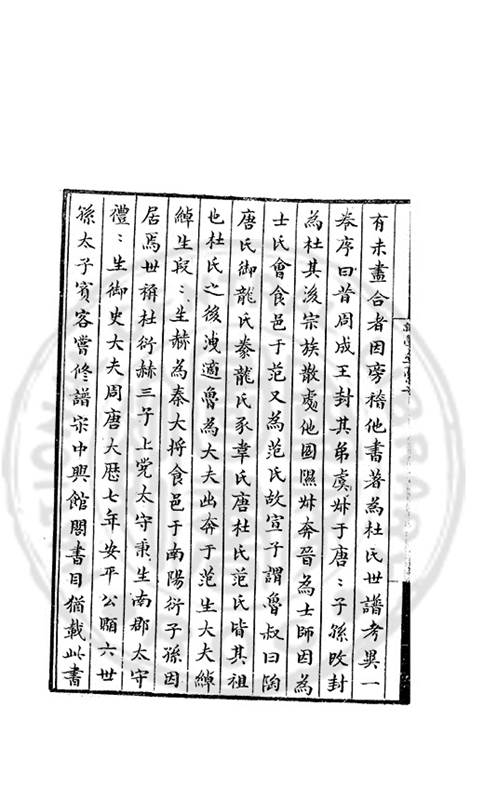 有未盡合者因旁稽他書著為杜氏世譜考異一
卷序曰昔周成王封其弟虞叔于唐〻子孫改封
為杜其後宗族散處他國隰叔奔晉為士師因為
士氏會食邑于范又為范氏故宣子謂魯叔曰陶
唐氏御龍氏豢龍氏豕韋氏唐杜氏范氏皆其祖
也杜氏之後洩適魯為大夫出奔于范生大夫綽
綽生段〻生赫為秦大将食邑于南陽衍子孫因
居焉世稱杜衍赫三子上党太守秉生南郡太守
禮〻生御史大夫周唐大歴七年安平公頤六世
孫太子賓客嘗修譜宋中興館閣書目猶載此書